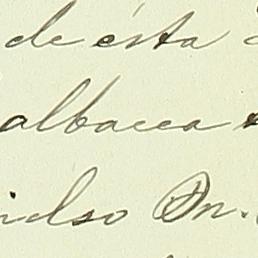 de ésta
albacea
idso Dn.